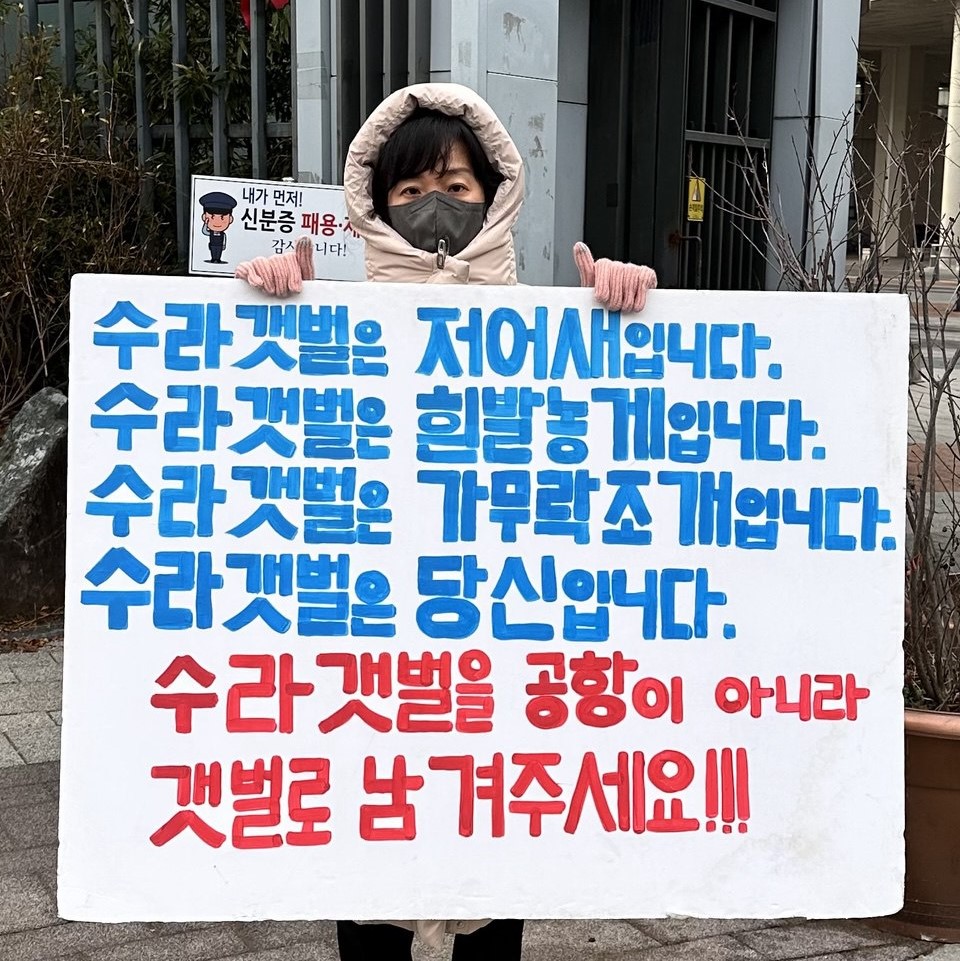 내가 먼저!
신분증 패용·
수라갯벌은 저어새입니다.
수라갯벌은 흰발농게입니다.
수라갯벌은 가무락조개입니다.
수라갯벌은 당신입니다.
수라갯벌을 공항이 아니라
갯벌로 남겨주세요!!!